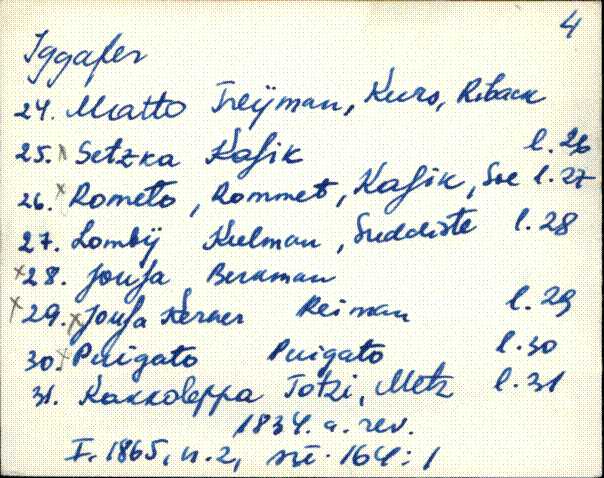 4
Iggafer
24. Matto Treijman, Kuro, Riback
25. x Setzka Kasik l. 26
26. x Rometo, Rommet, Kasik, Soe l. 27
27. Lombij Kulman, Suddiste l. 28
x 28. Jousa Berkman
x 29. x Jousa Kerner Reiman l. 29
30. x Puigato Puigato l. 30
31. Kakkoleppa Totzi, Metz l. 31
1834. a. rev.
I. 1865, n. 2, 164:1